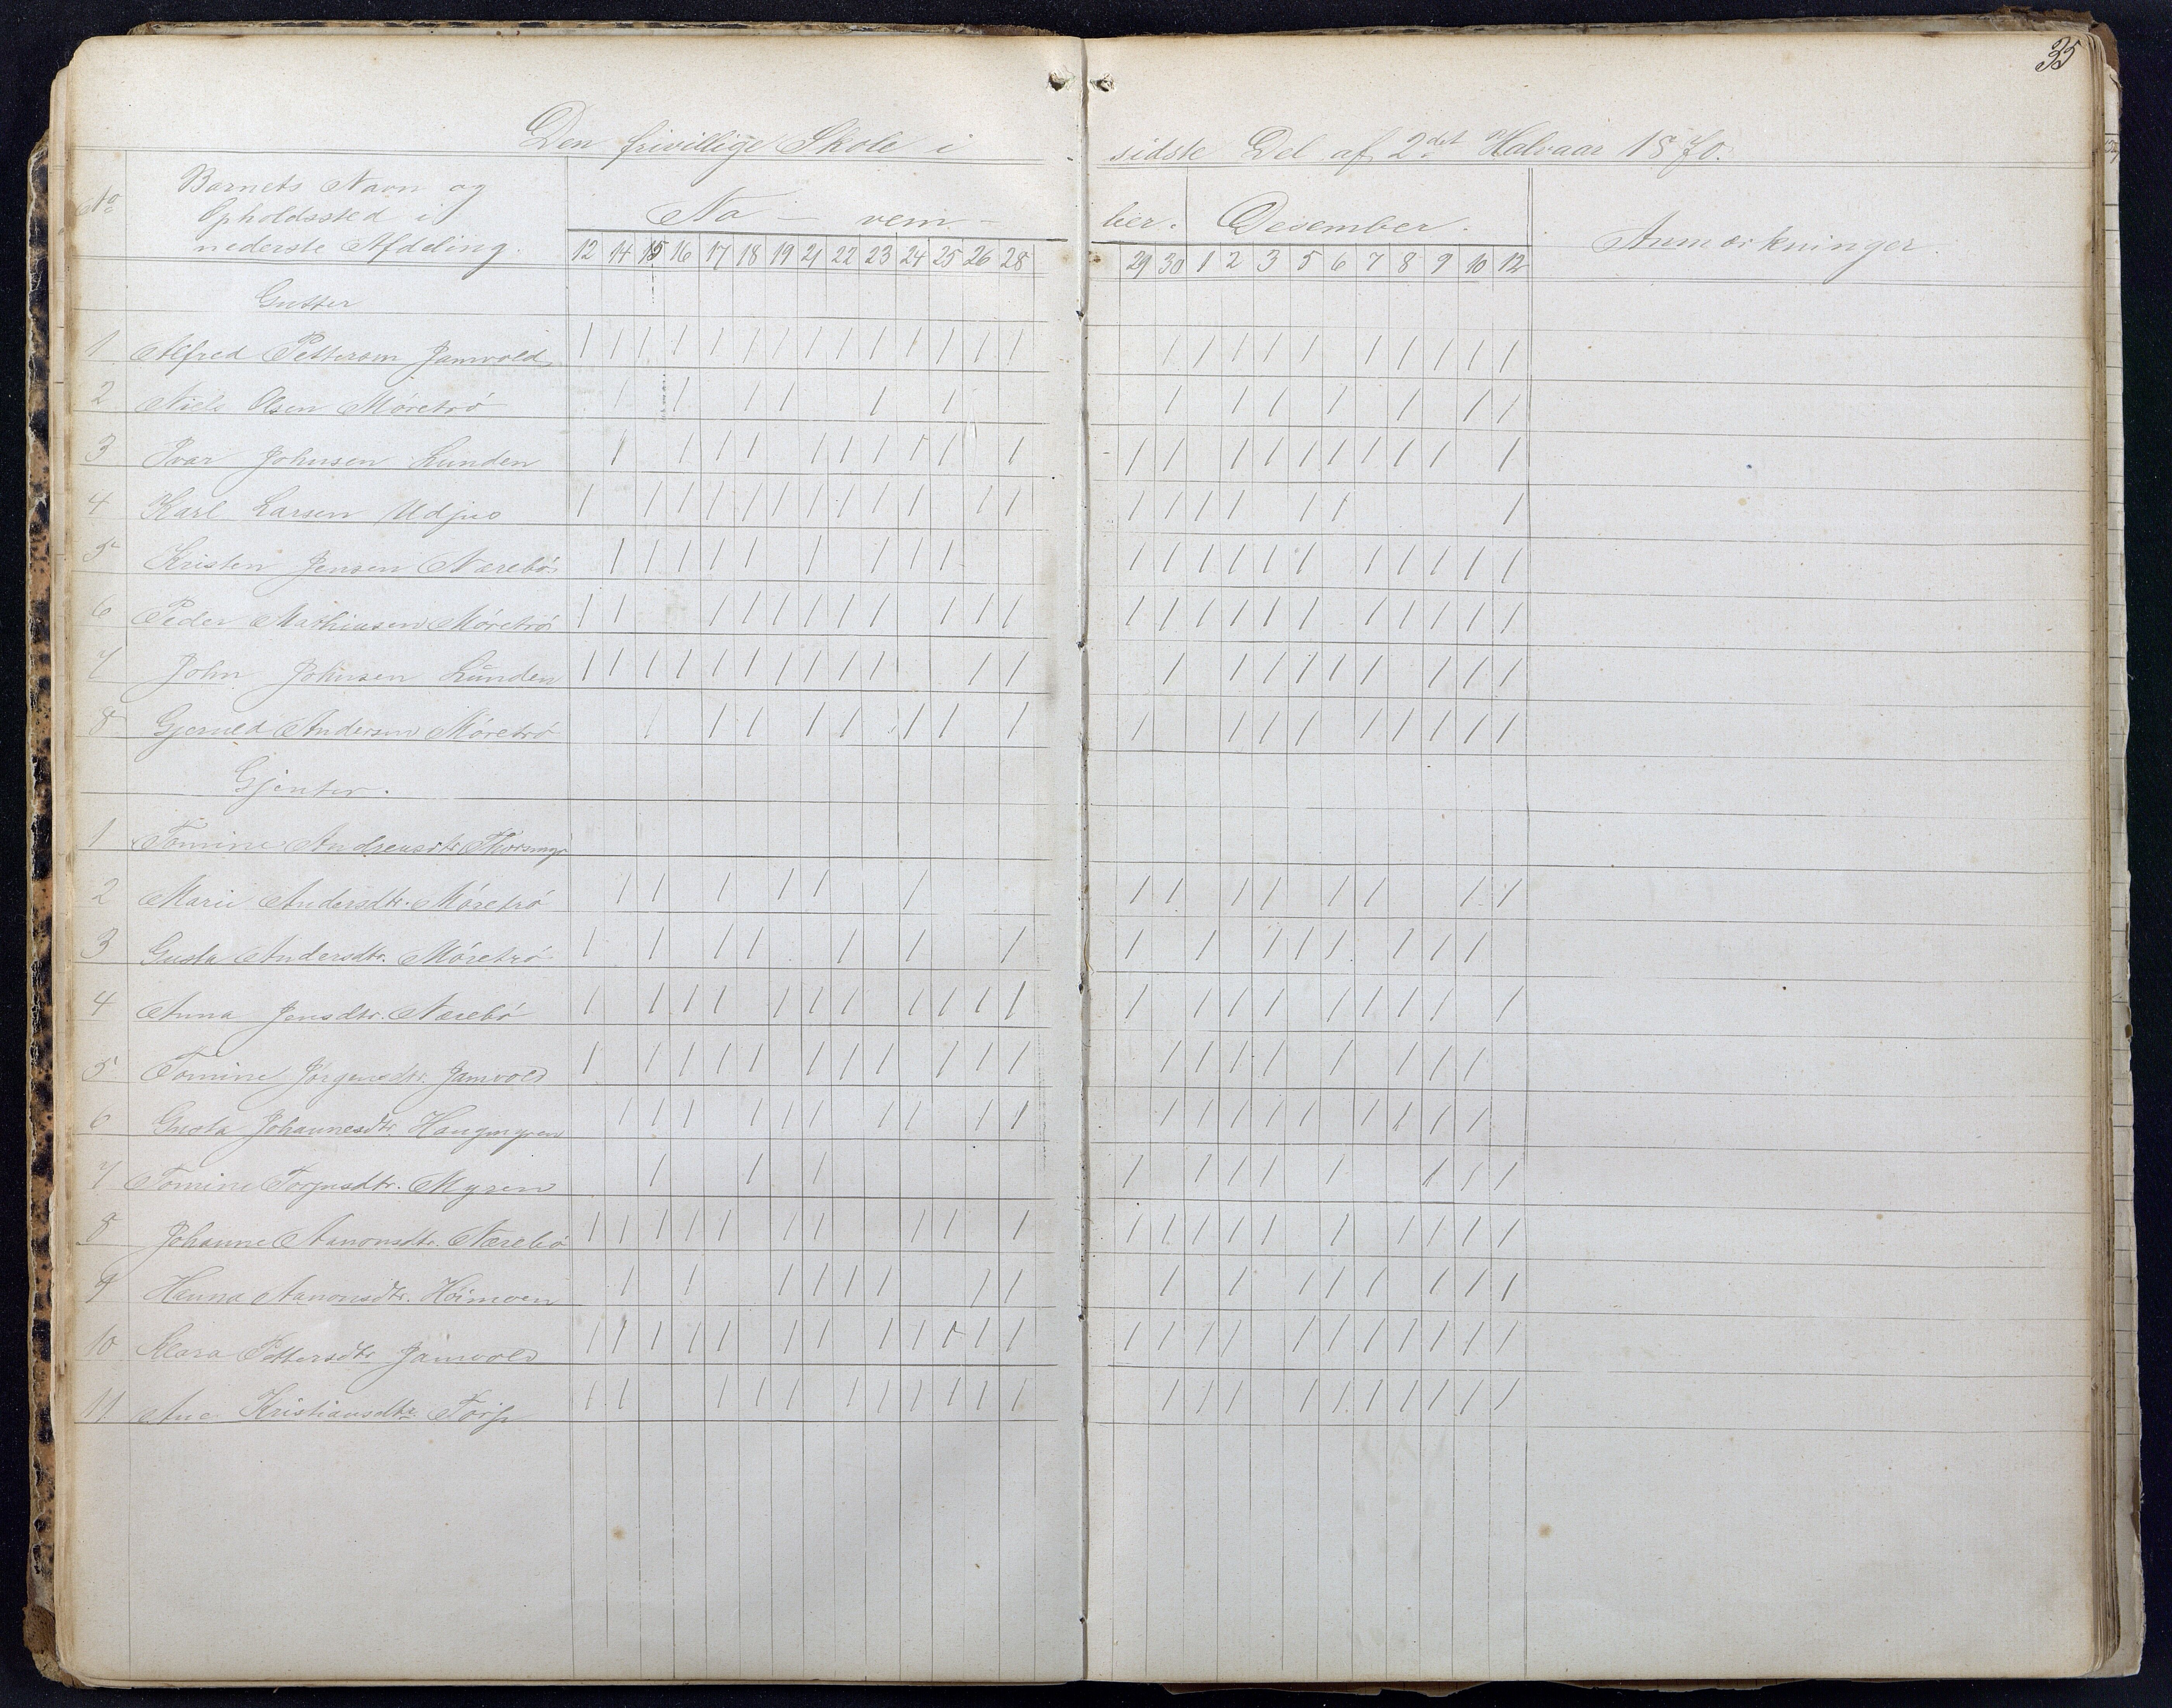 35
Den frivillige Skole i sidste Del af 2det Halvaar 1870.
No
Barnets Navn og
Opholdssted i
nederste Afdeling.
No - vem - ber. Desember. Anmærkninger.
12 14 15 16 17 18 19 21 22 23 24 25 26 28 29 30 1 2 3 5 6 7 8 9 10 12
Gutter
1 Alfred Pettersen Jamvold / / / / / / / / / / / / / / / / / / / / / / / / /
2 Niels Olsen Møretrø / / / / / / / / / / / / /
3 Ivar Johnsen Lunden / / / / / / / / / / / / / / / / / / / / /
4 Karl Larsen Udjus / / / / / / / / / / / / / / / / / / /
5 Kristen Jensen Nærebø / / / / / / / / / / / / / / / / / / / /
6 Peder Mathiasen Møretrø / / / / / / / / / / / / / / / / / / / / / /
7 John Johnsen Lunden / / / / / / / / / / / / / / / / / / / / /
8 Gjeruld Andersen Møretrø / / / / / / / / / / / / / / / / / /
Gjenter.
1 Tomine Andreasdtr.
2 Marie Andersdtr. Møretrø / / / / / / / / / / / / / /
3 Gusta Andersdtr. Møretrø / / / / / / / / / / / / / / /
4 Anna Jensdtr. Nærebø / / / / / / / / / / / / / / / / / / / /
5 Tomine Jørgensdtr. Jamvold / / / / / / / / / / / / / / / / / / /
6 Gusta Johannesdtr. Haugmyren / / / / / / / / / / / / / / / / / / /
7 Tomine Torjusdtr. Myren / / / / / / / / / / / /
8 Johanne Aanonsdtr. Nærebø / / / / / / / / / / / / / / / / / / / /
9 Hanna Aanonsdtr. Heimoen / / / / / / / / / / / / / / / /
10 Klara Pettersdtr. Jamvold / / / / / / / / / / / / / / / / / / / / / / /
11 Ane Kristiansdtr. Torp / / / / / / / / / / / / / / / / / / / / / /